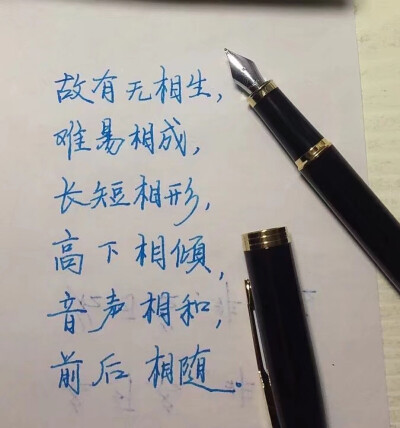 故有无相生，
难易相成，
长短相形，
高下相傾，
音声相和，
前后相随。